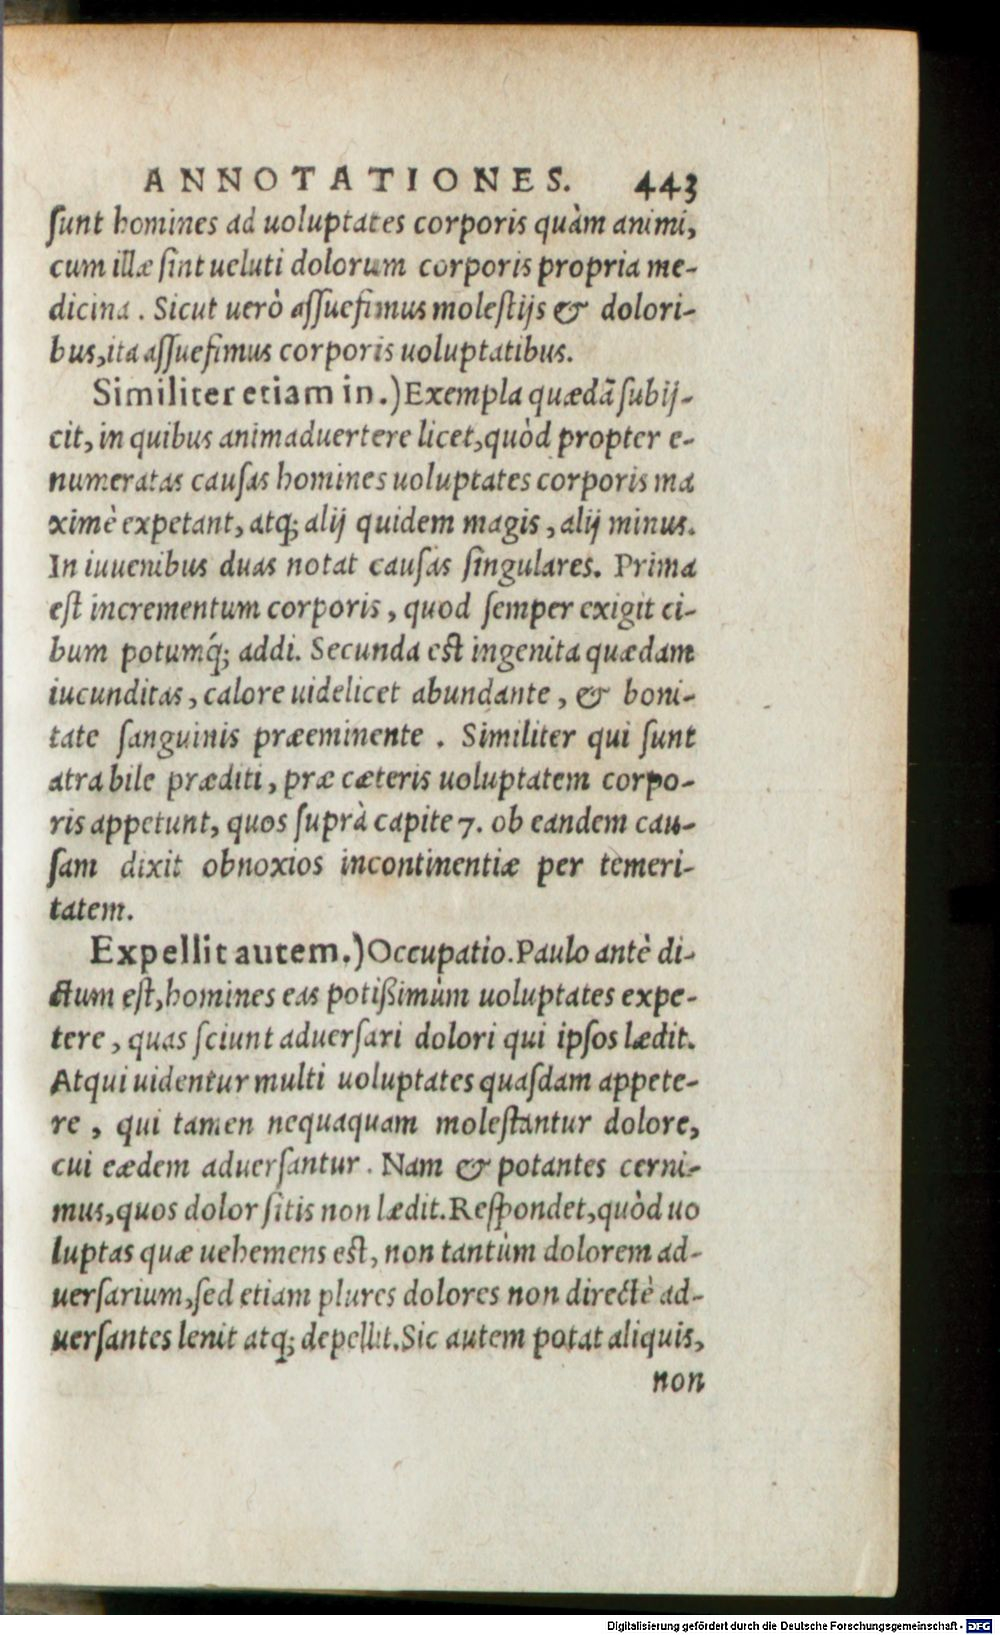 ANNOTATIONES. 443
ſunt homines ad uoluptates corporis quàm animi,
cum illæ ſint ueluti dolorum corporis propria me-
dicina. Sicut uerò aſſueſimus moleſtijs & dolori-
bus, ita aſſueſimus corporis uoluptatibus.
Similiter etiam in.) Exempla quædã ſubij-
cit, in quibus animaduertere licet, quòd propter e-
numeratas cauſas homines uoluptates corporis ma
ximè expetant, atq; alij quidem magis, alij minus.
In iuuenibus duas notat cauſas ſingulares. Prima
eſt incrementum corporis, quod ſemper exigit ci-
bum potumq́; addi. Secunda eſt ingenita quædam
iucunditas, calore uidelicet abundante, & boni-
tate ſanguinis præeminente. Similiter qui ſunt
atra bile præditi, præ cæteris uoluptatem corpo-
ris appetunt, quos ſuprà capite 7. ob eandem cau-
ſam dixit obnoxios incontinentiæ per temeri-
tatem.
Expellit autem.) Occupatio. Paulo antè di-
ctum eſt, homines eas potißimùm uoluptates expe-
tere, quas ſciunt aduerſari dolori qui ipſos lædit.
Atqui uidentur multi uoluptates quaſdam appete-
re, qui tamen nequaquam moleſtantur dolore,
cui eædem aduerſantur. Nam & potantes cerni-
mus, quos dolor ſitis non lædit. Reſpondet, quòd uo
luptas quæ uehemens eſt, non tantùm dolorem ad-
uerſarium, ſed etiam plures dolores non directè ad-
uerſantes lenit atq; depellit. Sic autem potat aliquis,
non
Digitalisierung gefördert durch die Deutsche Forschungsgemeinschaft - DFG